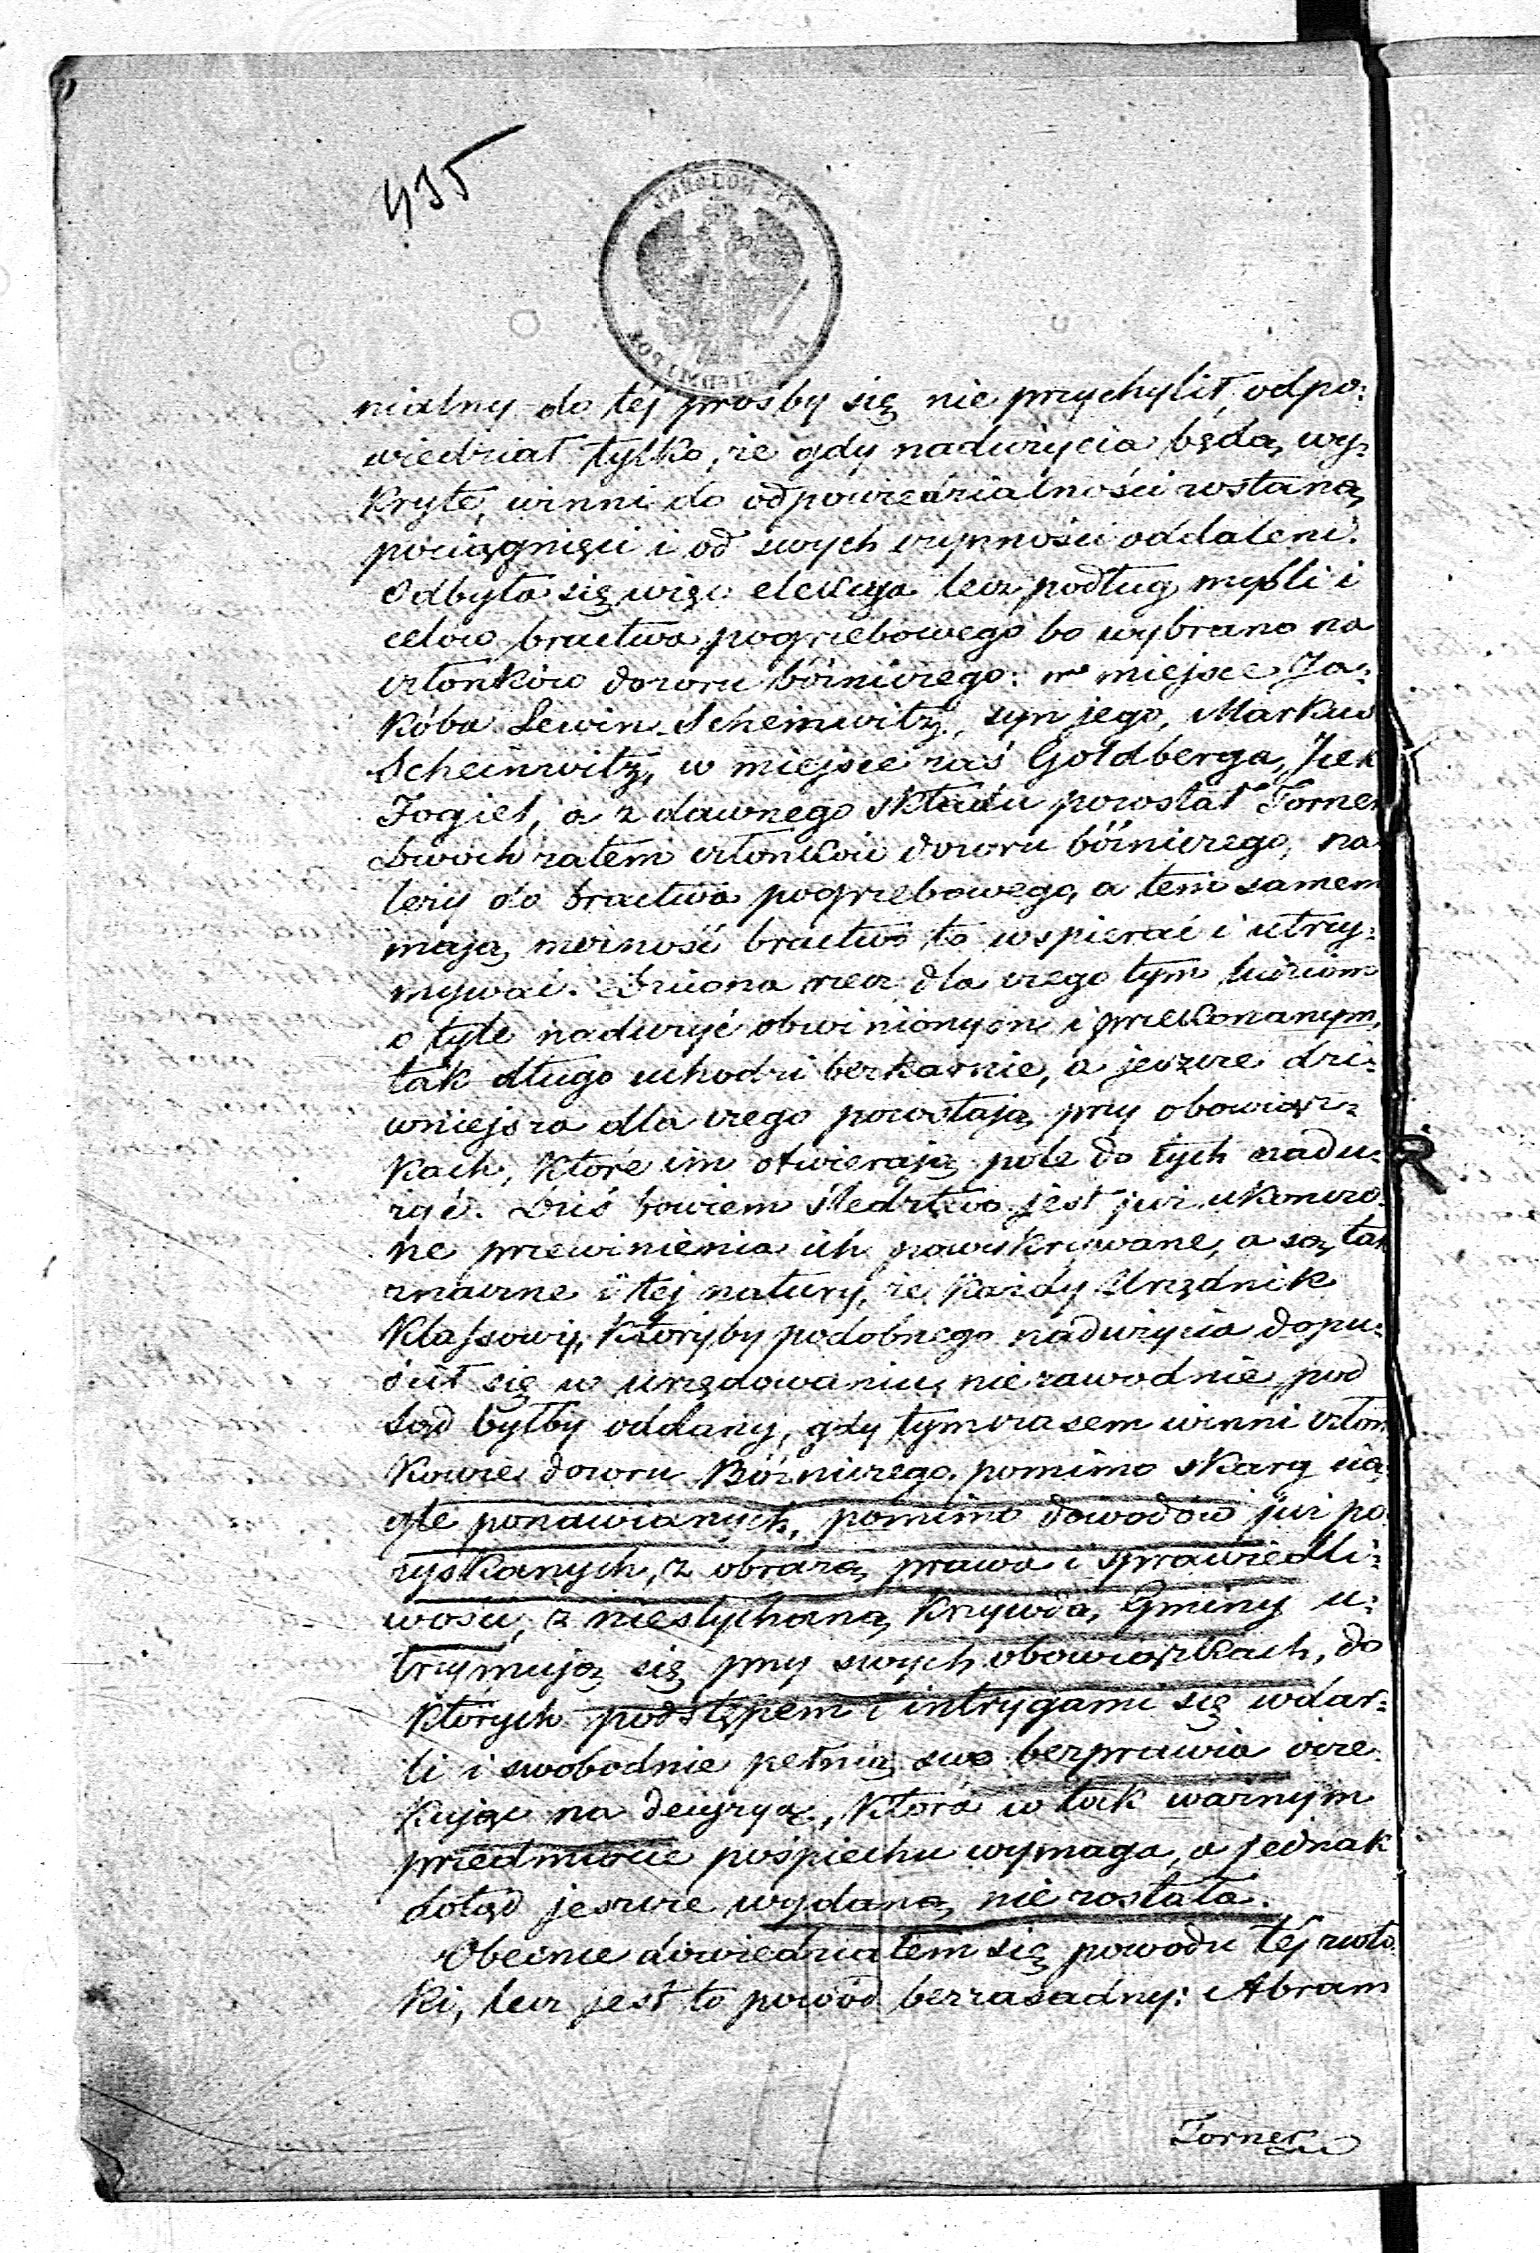 435
nialny do téj prośby się nie przychylił, odpo:
wiedział tylko, że gdy nadużycia będą wy:
kryte, winni do odpowiedzialności zostaną
pociągnięci i od swych czynności oddaleni.
Odbyła się więc elekcya lecz podług myśli i
celów bractwa pogrzebowego bo wybrano na
członków dozoru bóżniczego: w miejsce Ja:
kóba Lewin Scheinwitz, syn jego, Markus
Scheinwitz, w miejsce zaś Goldberga, Icek
Jogiel, a z dawnego składu pozostał Torner
Dwóch zatem członków dozoru bóźniczego, na
leży do bractwa pogrzebowego, a tem samem
mają możność bractwo to wspierać i utrzy:
mywać. Dziwna rzecz dla czego tym ludziom
o tyle nadużyć obwinionym i przekonanym,
tak długo uchodzi bezkarnie, a jeszcze dzi:
wniejsza dla czego pozostają przy obowiąz:
kach, które im otwierają pole do tych nadu:
żyć. Dziś bowiem śledztwo jest już ukończo
ne przewinienia ich powykrywane, a są tak
znaczne i tej natury, że każdy Urzędnik
Klassowy, któryby podobnego nadużycia dopu:
ścił się w urzędowaniu, niezawodnie pod
Sąd byłby oddany, gdy tymczasem winni człon
kowie dozoru Bóżniczego, pomimo skarg cią
gle ponawianych, pomimo dowodów już po
zyskanych, z obrazą prawa i sprawiedli:
wości, z niesłychaną krzywdą Gminy u:
trzymują się przy swych obowiązkach, do
których podstępem i intrygami się wdar:
li i swobodnie pełnią swe bezprawia ocze
kując na decyzyą, która w tak ważnym
przedmiocie pośpiechu wymaga, a jednak
dotąd jeszcze wydaną nie została.
Obecnie dowiedziałem się powodu téj zwło
ki, lecz jest to powód bezzasadny: Abram
Torner